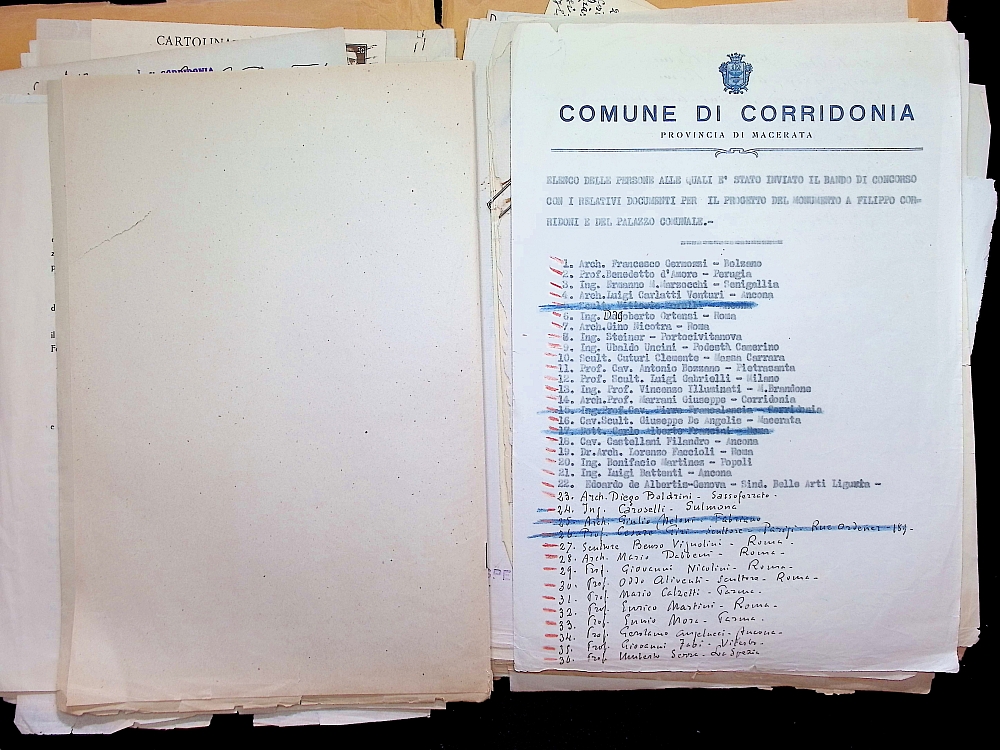 CARTOLINA
CORRIDONIA
COMUNE DI CORRIDONIA
PROVINCIA DI MACERATA
ELENCO DELLE PERSONE ALLE QUALI E' STATO INVIATO IL BANDO DI CONCORSO
CON I RELATIVI DOCUMENTI PER IL PROGETTO DEL MONUMENTO A FILIPPO COR=
RIDONI E DEL PALAZZO COMUNALE.-
1. Arch. Francesco Germozzi - Bolzano
2. Prof.Benedetto d'Amore - Perugia
3. Ing. Ermanno M.Marzocchi - Senigallia
4. Arch.Luigi Carlatti Venturi - Ancona
6. Ing. Dagoberto Ortensi - Roma
7. Arch.Gino Nicotra - Roma
8. Ing. Steiner - Portocivitanova
9. Ing. Ubaldo Uncini - Podestà Camerino
10. Scult. Cuturi Clemente - Massa Carrara
11. Prof. Cav. Antonio Bozzano - Pietrasanta
12. Prof. Scult. Luigi Gabrielli - Milano
13. Ing. Prof. Vincenzo Illuminati - M.Brandone
14. Arch.Prof. Marrani Giuseppe - Corridonia
15. Ing.Prof.Cav. Piero Francalancia - Corridonia
16. Cav.Scult. Giuseppe De Angelis - Macerata
17. Dott. Carlo Alberto Francini - Roma
18. Cav. Castellani Filandro - Ancona
19. Dr.Arch. Lorenzo Faccioli - Roma
20. Ing. Bonifacio Martinez - Popoli
21. Ing. Luigi Battenti - Ancona
22. Edoardo de Albertis-Genova - Sind. Belle Arti Liguria -
23. Arch. Diego Boldrini - Sassoferrato -
24. Ing. Caroselli - Sulmona
25. Arch. Giulio Meloni - Fabriano
26. Prof. Cesare Giri - scultore - Parigi - Rue Ordener - 189 -
27. Scultore Benso Vignolini - Roma -
28. Arch. Mario Dabbeni - Roma -
29. Prof. Giovanni Nicolini - Roma -
30. Prof. Oddo Aliventi - Scultore - Roma -
31. Prof. Mario Calzetti - Parma -
32. Prof. Enrico Martini - Roma -
33. Prof. Ennio Mora - Parma -
34. Prof. Gerolamo Angelucci - Ancona -
35. Prof. Giovanni Fabi - Viterbo -
36. Prof. Umberto Serra - La Spezia